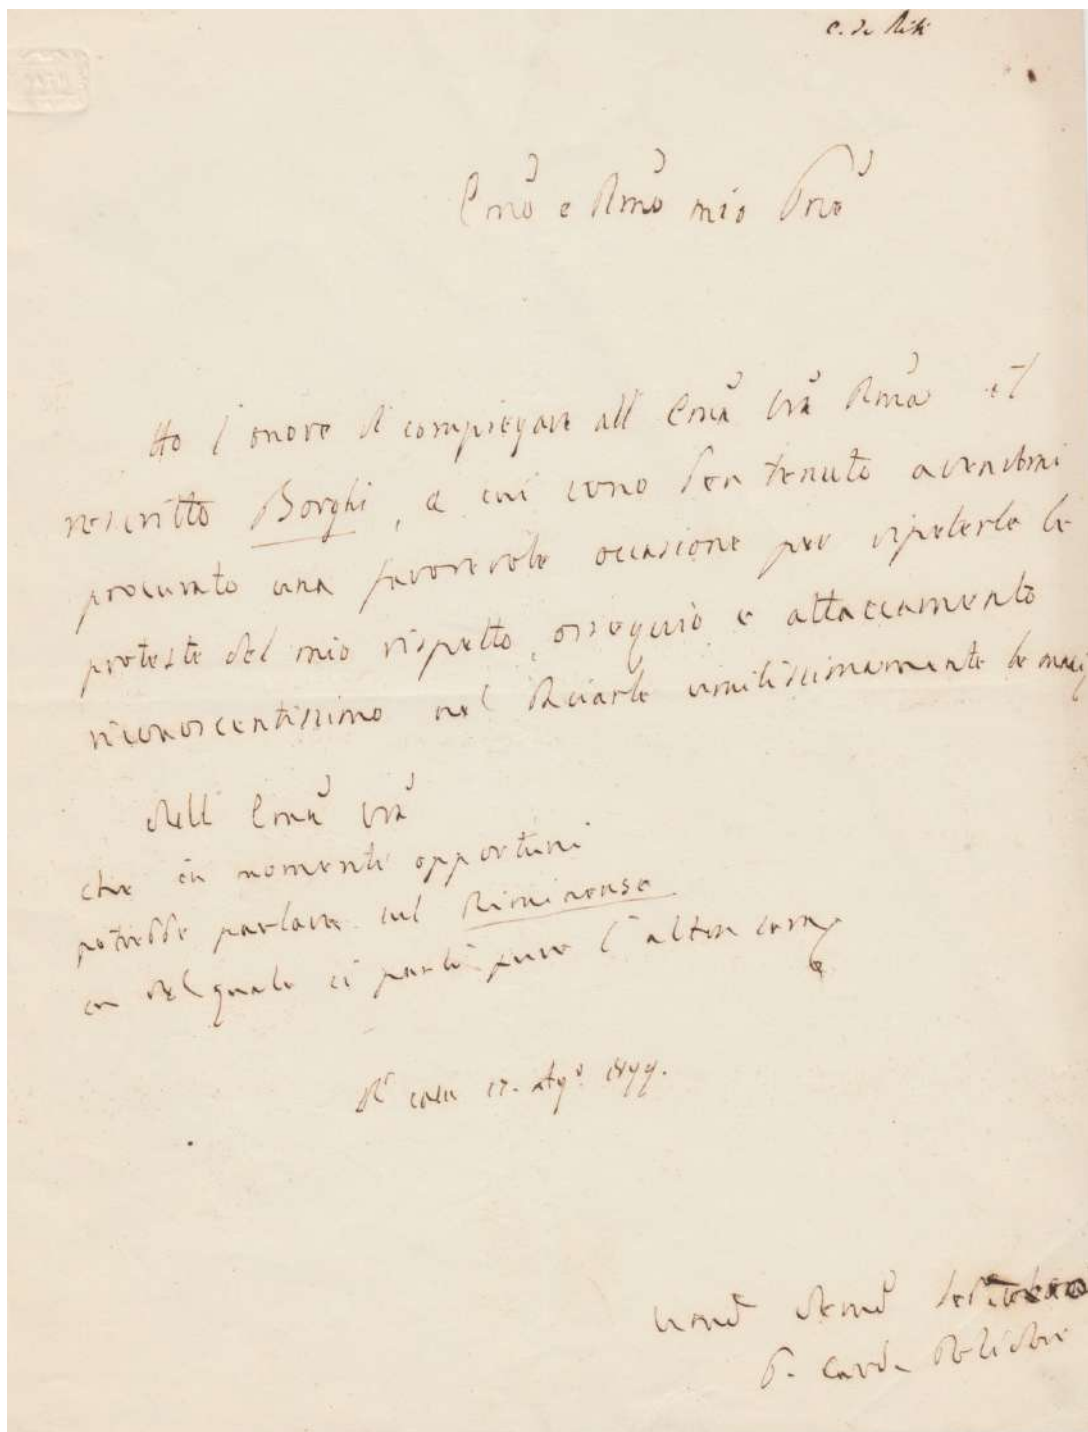 Emõ e Rmõ mio Prõe
Ho l onore di compiegare all Emã Vrã Rmã il
rescritto Borghi, a cui sono ben tenuto avendomi
procurato una favorevole occasione per ripeterle le
proteste del mio rispetto, ossequio e attaccamento
riconoscentissimo nel baciarle umilissimamente le mani
Dell Emã Vrã
che in momenti opportuni
potrebbe parlare sul Riminense
del quale si parlò pure l altra
Di casa 17. Ago
P. Card. Polidori